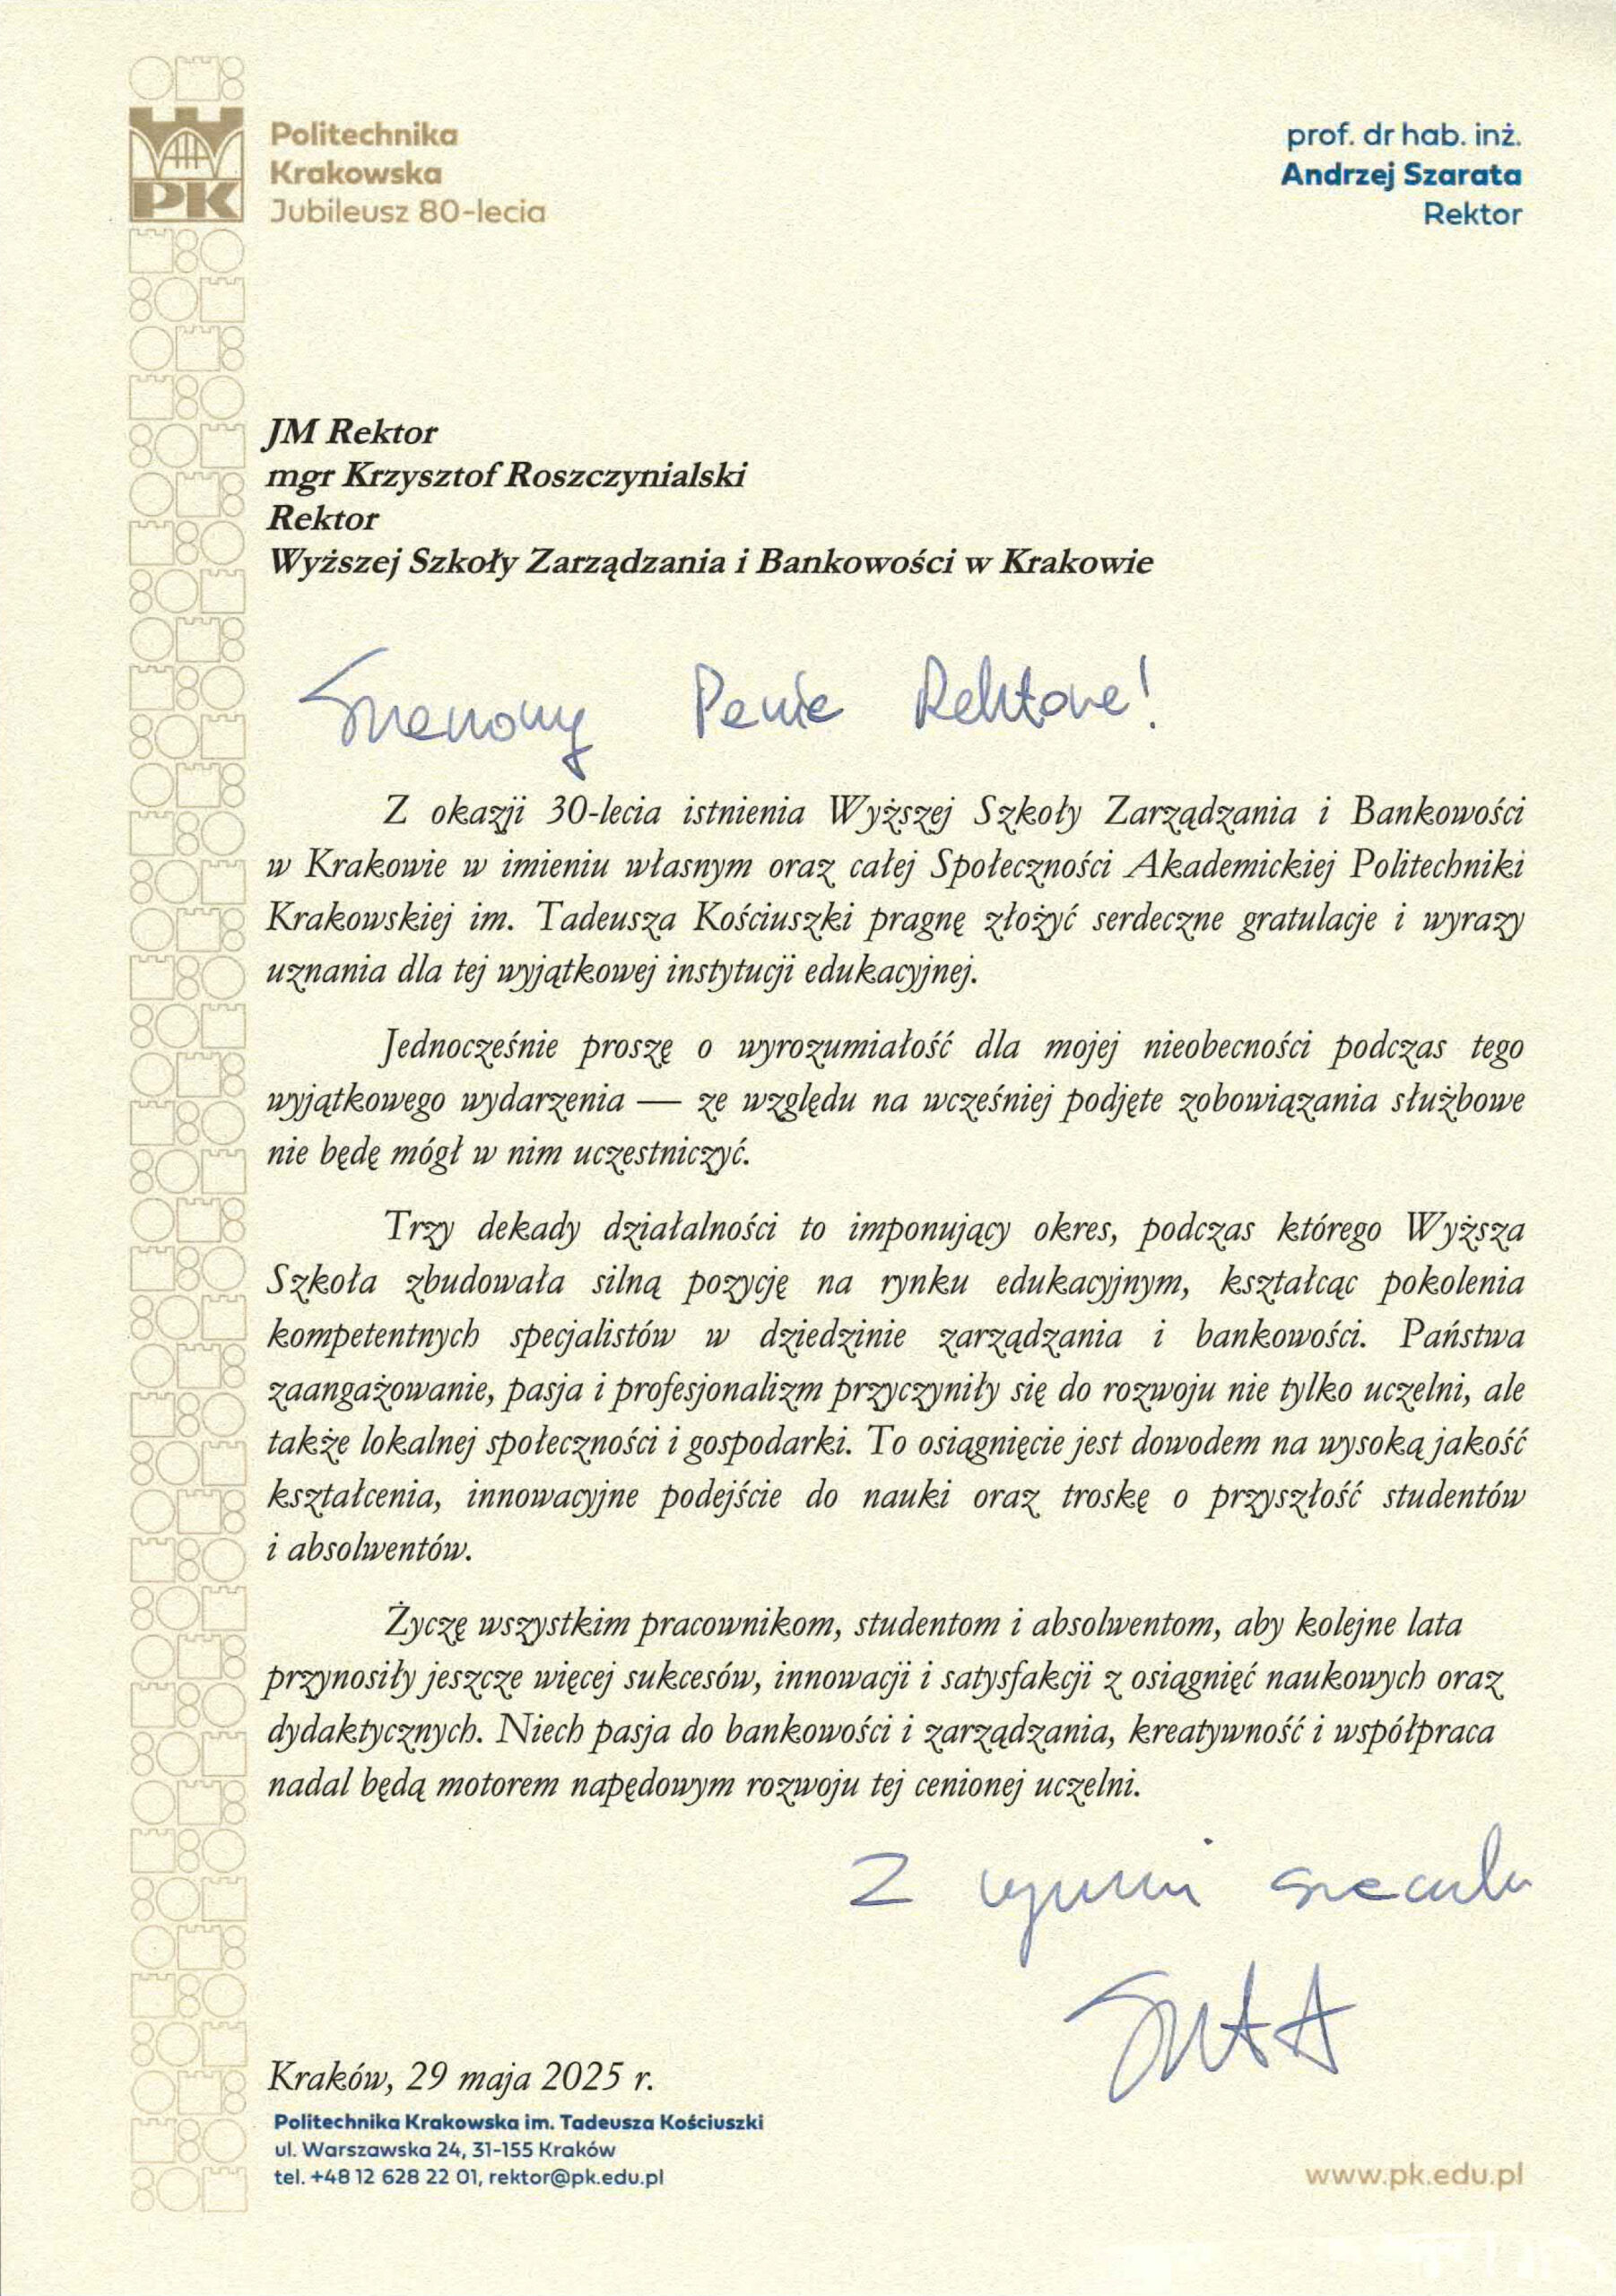 Politechnika
Krakowska
Jubileusz 80-lecia
PK
prof. dr hab. inż.
Andrzej Szarata
Rektor
JM Rektor
mgr Krzysztof Roszczynialski
Rektor
Wyższej Szkoły Zarządzania i Bankowości w Krakowie
Szanowny Panie Rektorze!
Z okazji 30-lecia istnienia Wyższej Szkoły Zarządzania i Bankowości
w Krakowie w imieniu własnym oraz całej Społeczności Akademickiej Politechniki
Krakowskiej im. Tadeusza Kościuszki pragnę złożyć serdeczne gratulacje i wyrazy
uznania dla tej wyjątkowej instytucji edukacyjnej.
Jednocześnie proszę o wyrozumiałość dla mojej nieobecności podczas tego
wyjątkowego wydarzenia — ze względu na wcześniej podjęte zobowiązania służbowe
nie będę mógł w nim uczestniczyć.
Trzy dekady działalności to imponujący okres, podczas którego Wyższa
Szkoła zbudowała silną pozycję na rynku edukacyjnym, kształcąc pokolenia
kompetentnych specjalistów w dziedzinie zarządzania i bankowości. Państwa
zaangażowanie, pasja i profesjonalizm przyczyniły się do rozwoju nie tylko uczelni, ale
także lokalnej społeczności i gospodarki. To osiągnięcie jest dowodem na wysoką jakość
kształcenia, innowacyjne podejście do nauki oraz troskę o przyszłość studentów
i absolwentów.
Życzę wszystkim pracownikom, studentom i absolwentom, aby kolejne lata
przynosiły jeszcze więcej sukcesów, innowacji i satysfakcji z osiągnięć naukowych oraz
dydaktycznych. Niech pasja do bankowości i zarządzania, kreatywność i współpraca
nadal będą motorem napędowym rozwoju tej cenionej uczelni.
Z wyrazami szacunku
Kraków, 29 maja 2025 r.
Politechnika Krakowska im. Tadeusza Kościuszki
ul. Warszawska 24, 31-155 Kraków
tel. +48 12 628 22 01, rektor@pk.edu.pl
www.pk.edu.pl